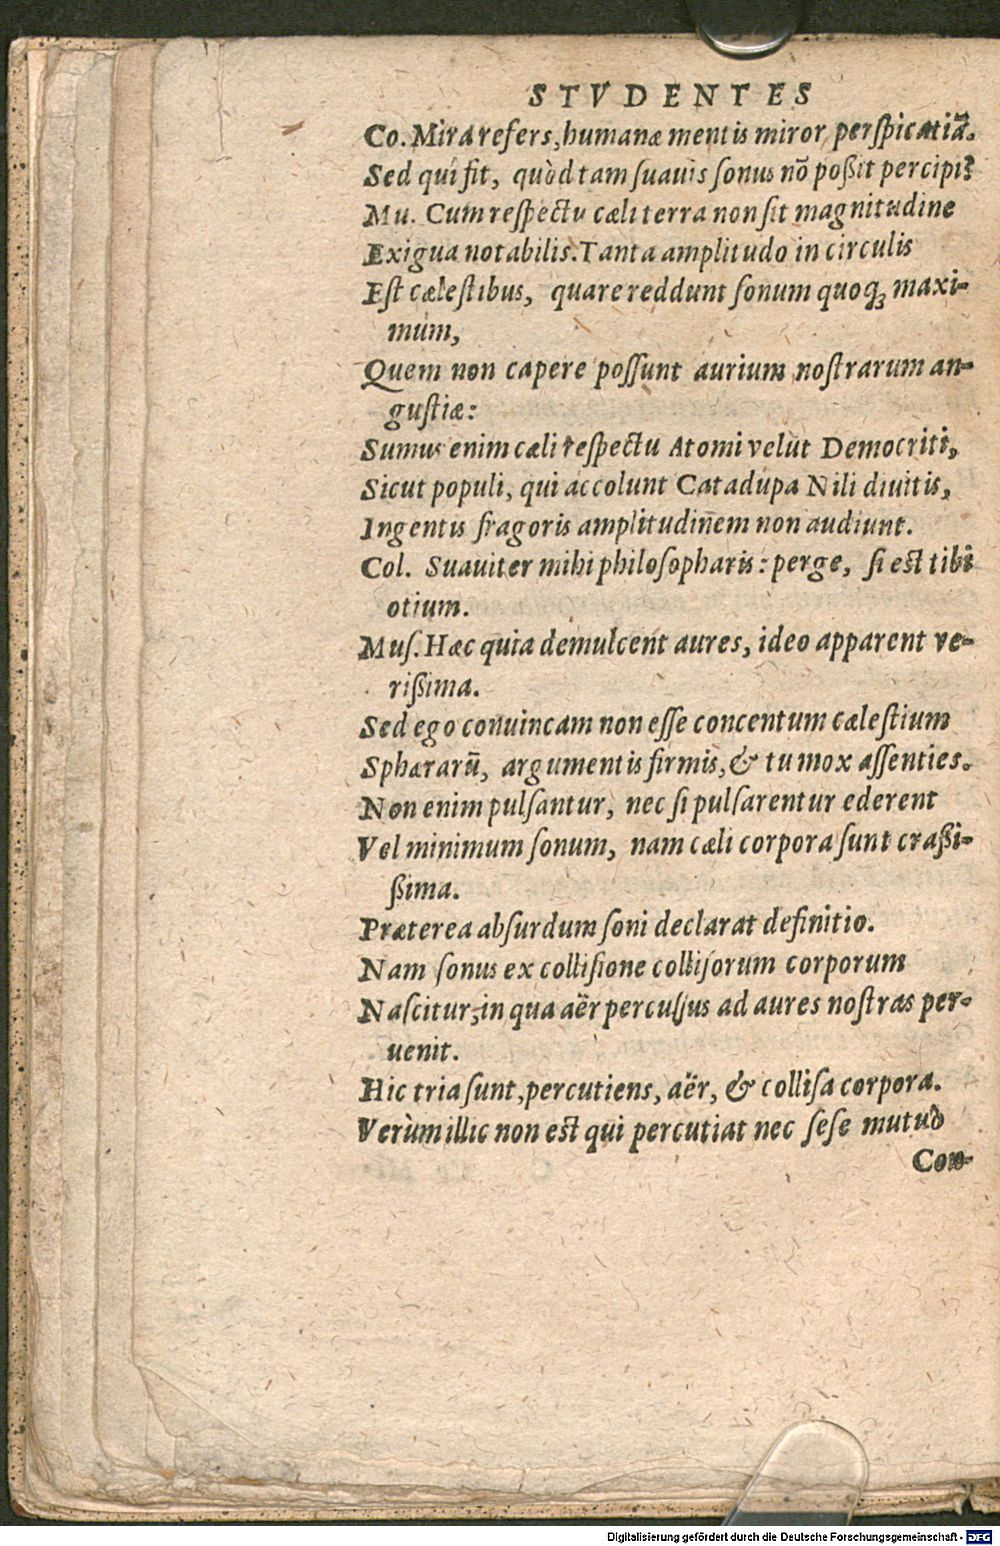 STVDENTES
Co. Mira refers, humanæ mentis miror perſpicatiã.
Sed quî fit, quòd tam ſuauis ſonus nõ poßit percipi?
Mu. Cum reſpectu cæli terra non ſit magnitudine
Exigua notabilis. Tanta amplitudo in circulis
Eſt cæleſtibus, quare reddunt ſonum quoqꝫ maxi-
mum,
Quem non capere poſſunt aurium noſtrarum an-
guſtiæ:
Sumus enim cæli reſpectu Atomi velut Democriti,
Sicut populi, qui accolunt Catadupa Nili diuitis,
Ingentis fragoris amplitudinem non audiunt.
Col. Suauiter mihi philoſopharis: perge, ſi eſt tibi
otium.
Muſ. Hæc quia demulcent aures, ideo apparent ve-
rißima.
Sed ego conuincam non eſſe concentum cæleſtium
Sphærarũ, argumentis firmis, & tu mox aſſenties.
Non enim pulſantur, nec ſi pulſarentur ederent
Vel minimum ſonum, nam cæli corpora ſunt craßi-
ßima.
Præterea abſurdum ſoni declarat definitio.
Nam ſonus ex colliſione colliſorum corporum
Naſcitur, in qua aër percuſſus ad aures noſtras per-
uenit.
Hic tria ſunt, percutiens, aër, & colliſa corpora.
Verùm illic non eſt qui percutiat nec ſeſe mutuò
Con-
Digitalisierung gefördert durch die Deutsche Forschungsgemeinschaft - DFG